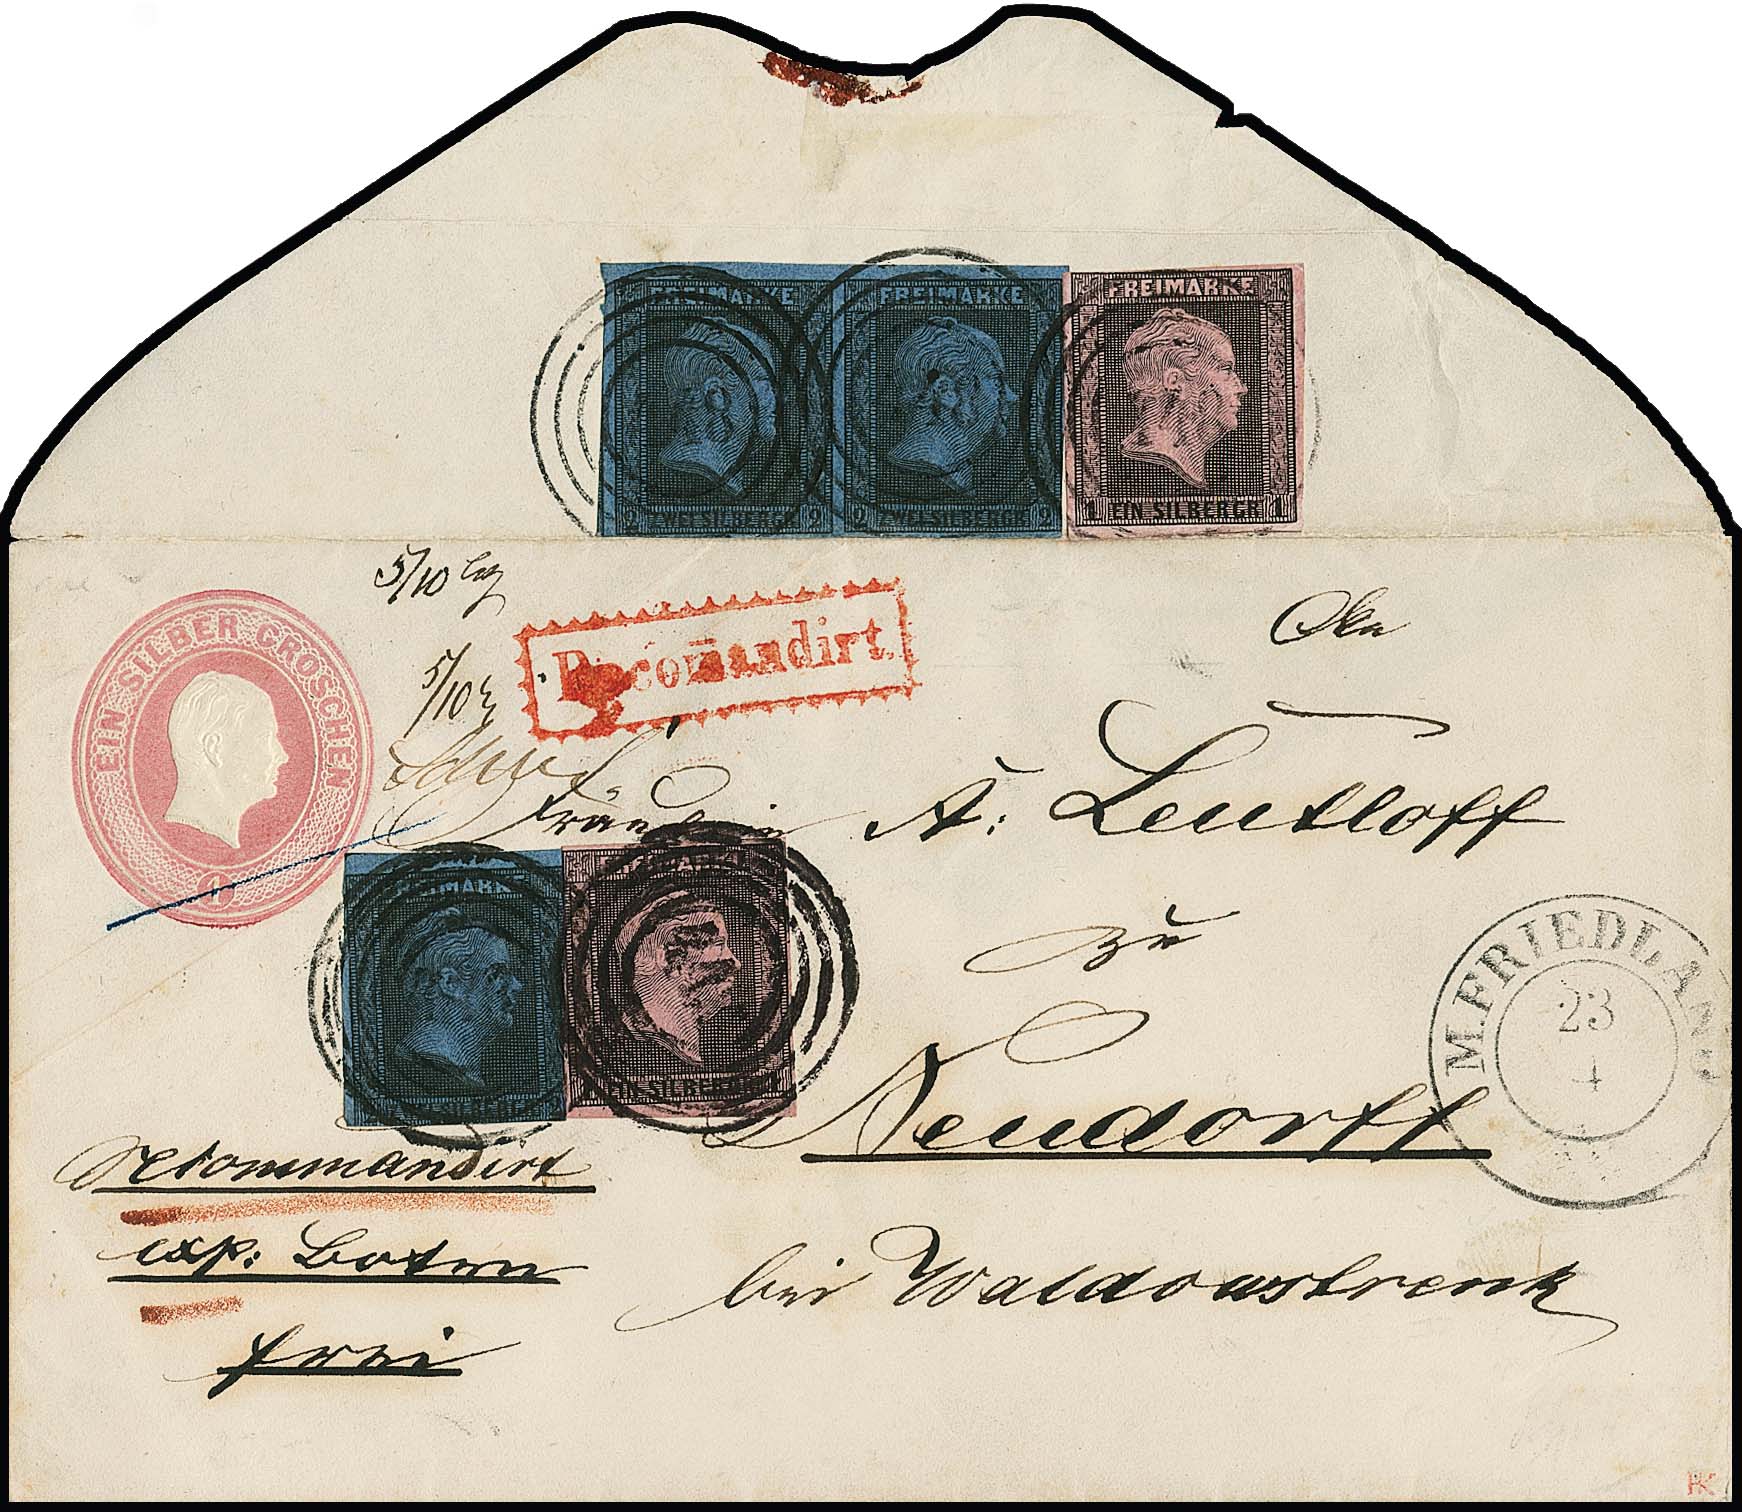 FREIMARKE FREIMARKE FREIMARKE
2 ZWEI SILBERGR 2 2 ZWEI SILBERGR 2 1 EIN SILBERGR 1
5/10
EIN SILBER GROSCHEN
1
Recomandirt.
5/10
Fräulein A: Leutloff
FREIMARKE FREIMARKE
ZWEI SILBERGR EIN SILBERGR 1
zu
M.FRIEDLAND
23
4
Neudorff
Recommandirt
exp: Boten
bei Waldowstrenk
frei
HK